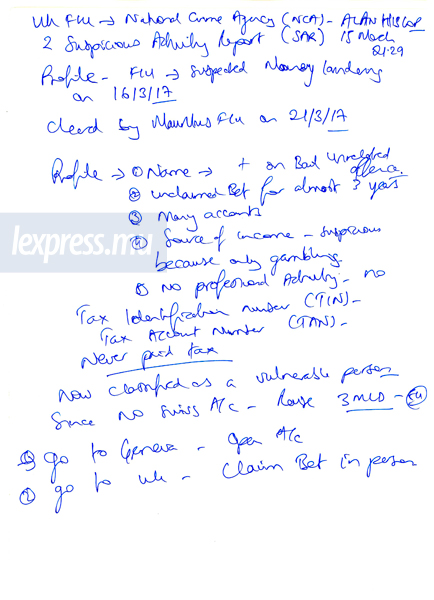 UK FIU → National Crime Agency (NCA) - ALAN HISLOP
2 Suspicious Activity Report (SAR) 15 March
21.29
Profile - FIU → suspected Money
on 16/3/17
Cleared by Mauritius FIU on 21/3/17
Profile → ① Name → + on Bail unrelated
offence.
② unclaimed Bet for almost 3 years
③ Many accounts
④ Source of income - suspicious
because only gambling.
⑤ No professional Activity - no
Tax Identification number (TIN) -
Tax Account Number (TAN) -
Never paid tax
lexpress.mu
Now classified as a vulnerable person
Since no Swiss A/c - Raise 3
① go to Geneva - open A/c
② go to UK - Claim Bet in person